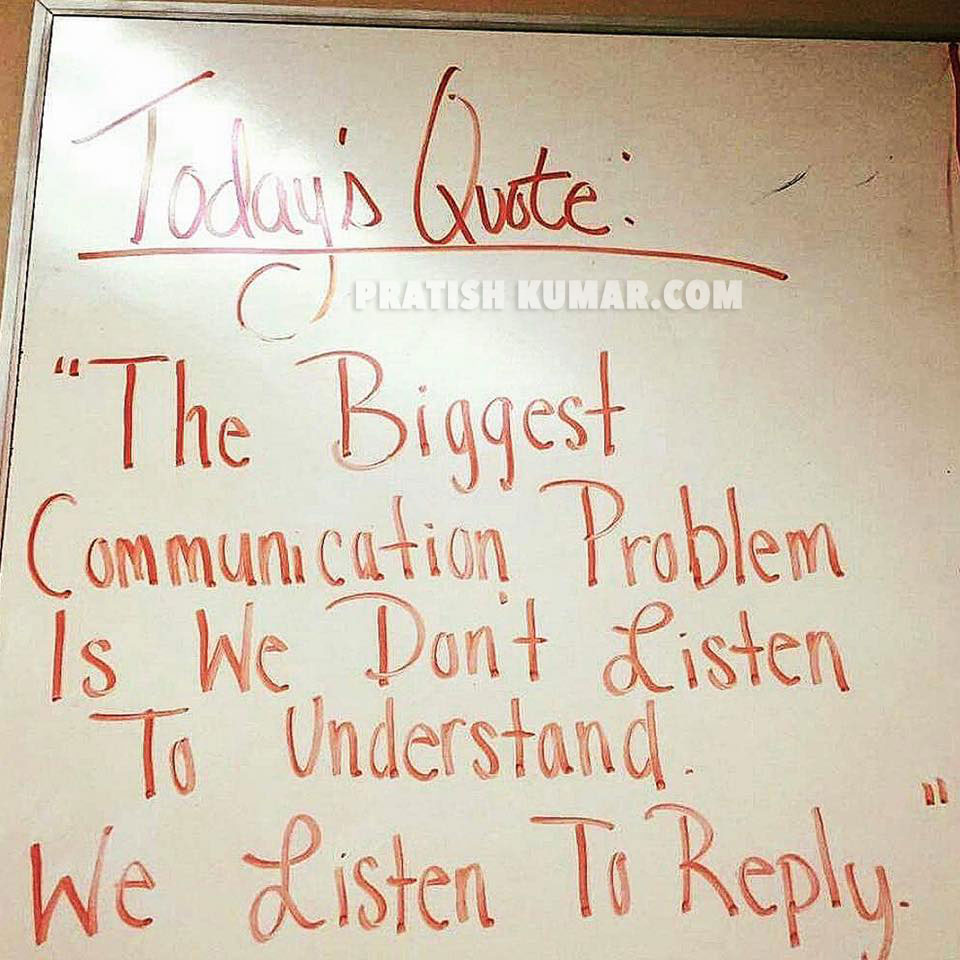 Today's Quote:
PRATISH KUMAR.COM
"The Biggest
Communication Problem
Is We Don't Listen
To Understand.
We Listen To Reply."